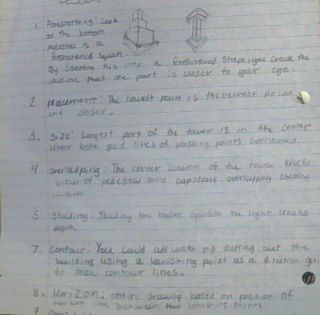 1. Foreshortening: Look
at the bottom
pedestal is a
foreshortened square.
By distorting this into a foreshortened shape, you create the
illusion that one part is closer to your eye.
2 placement: The lowest point is the nearest
and closer.
3. Size: Largest part of the tower is in the center
where both guide lines of vanishing points
4 overlapping: The center column of the tower blocks
view of pedestal and capstone overlapping
5 Shading: Shading the tower opposite the light creates
depth
7. Contour: You could add
building using a vanishing point as a direction
to draw contour lines.
8. Horizon: entire drawing based on position of
horizon line between vanishing points.
9.